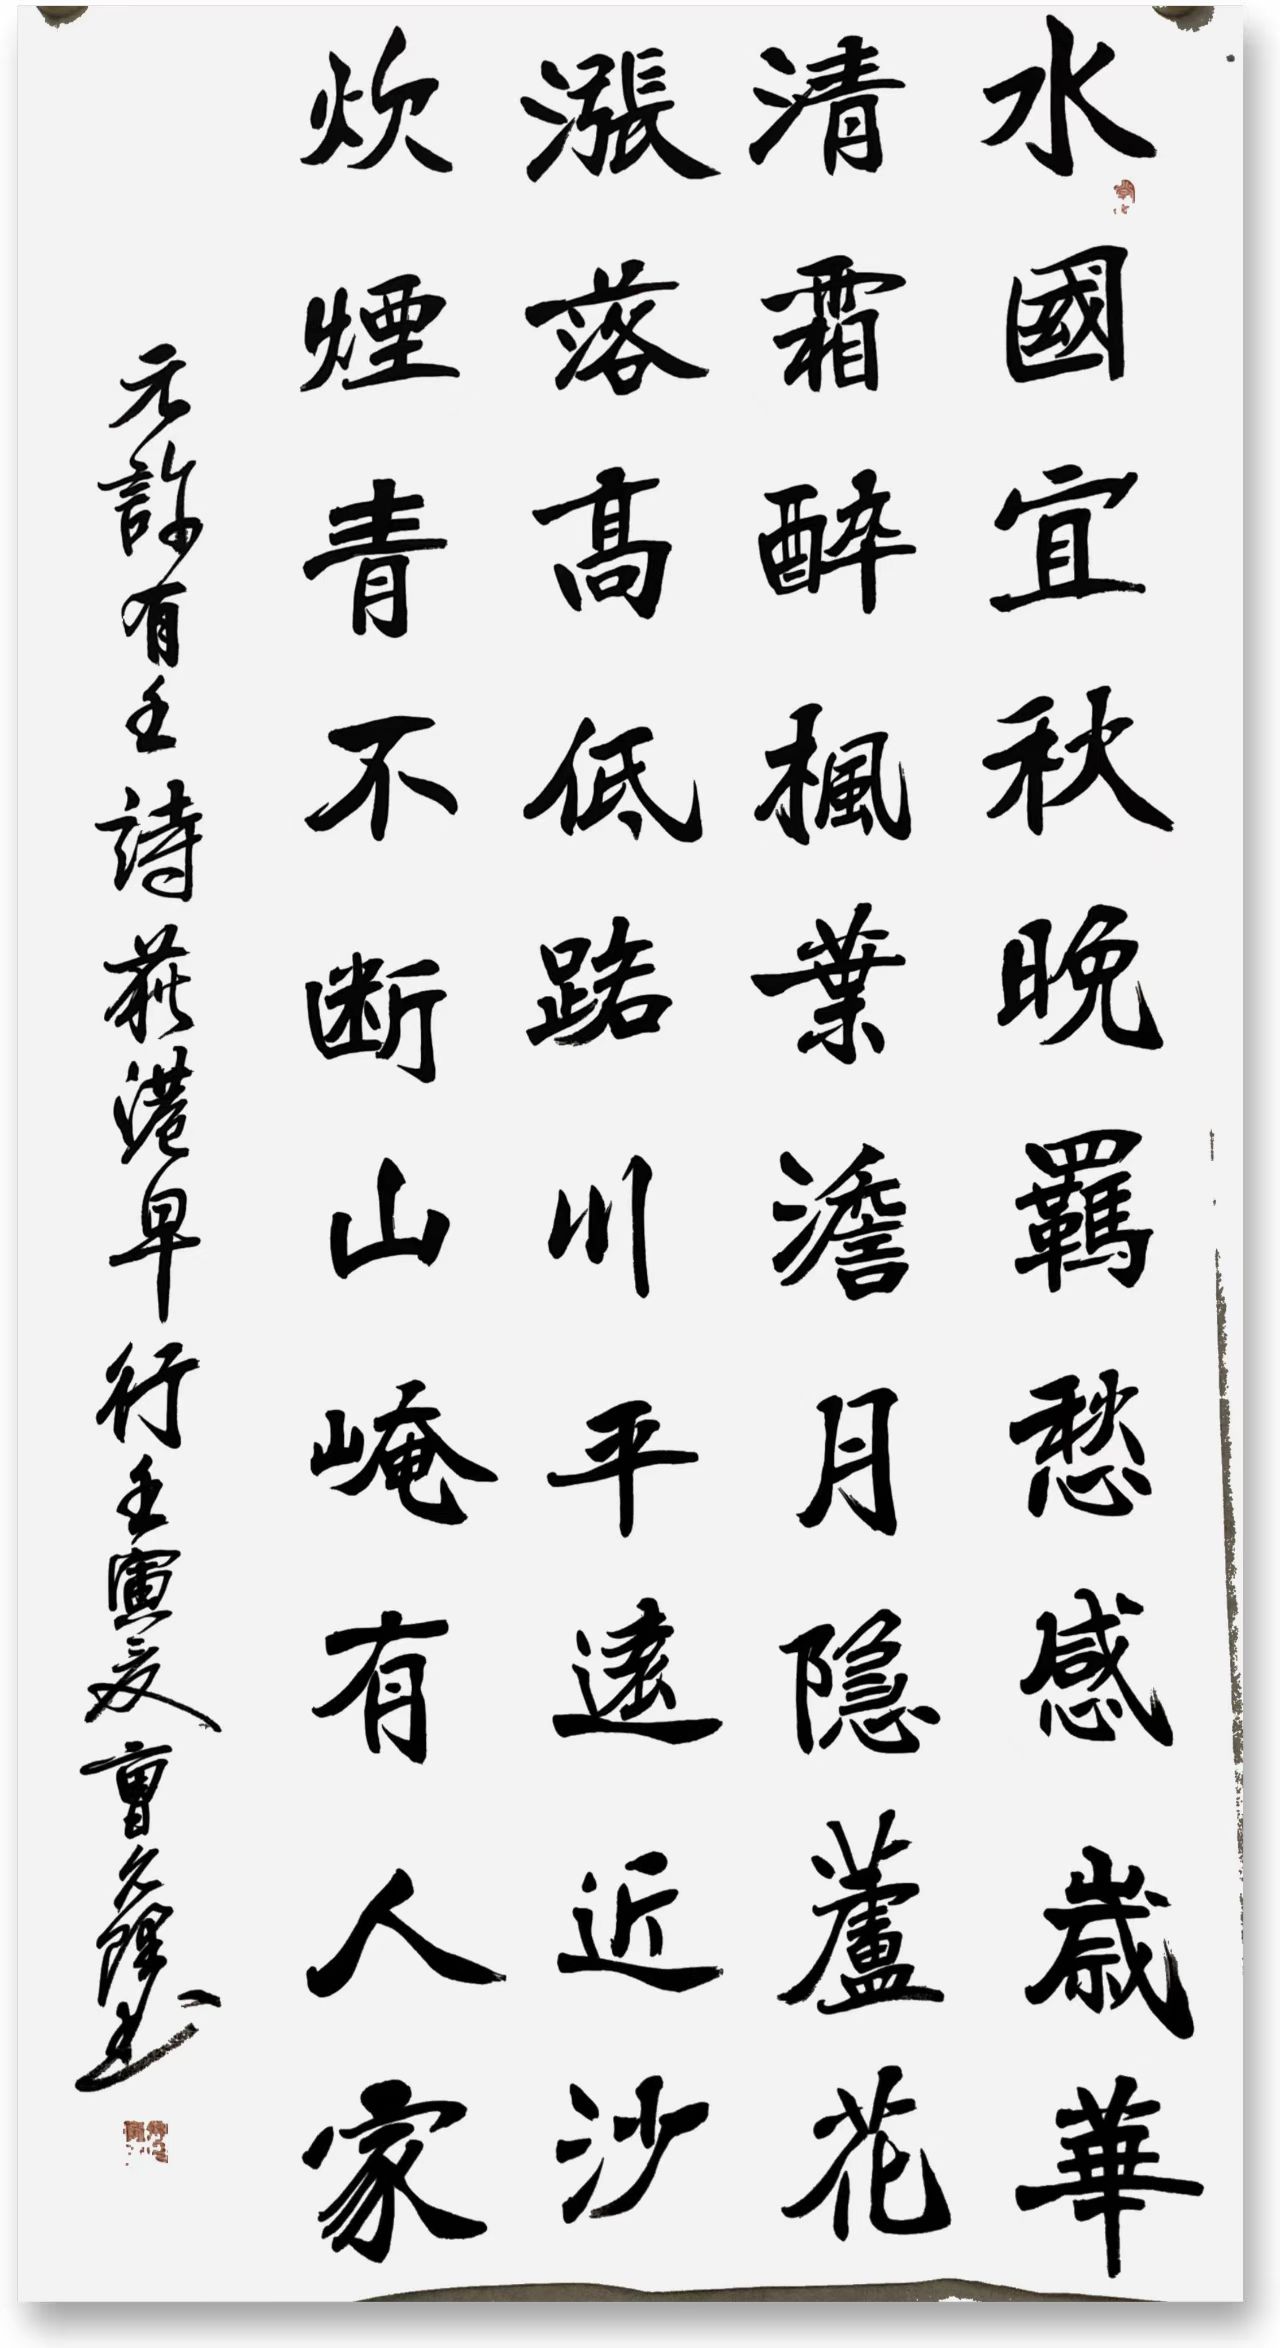 水國宜秋晚羈愁感歲華
清霜醉楓葉澹月隐蘆花
漲落髙低路川平遠近沙
炊煙青不断山崦有人家
元許有壬詩荻港早行壬寅夏曹隆書